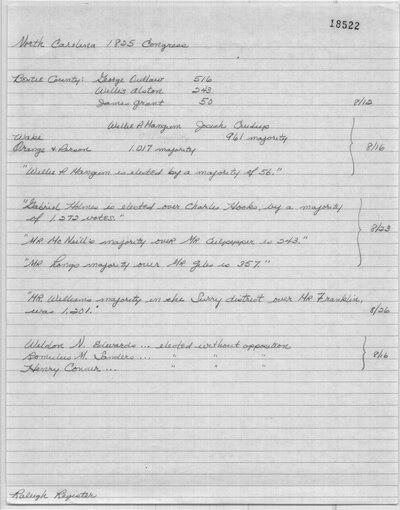 18522
North Carolina 1825 Congress
Bertie County: George Outlaw 516
Willis Alston 243
James Grant 50 8/12
Willie P. Mangum Josiah Crudup
Wake 961 majority
Orange & Person 1,017 majority 8/16
"Willie P. Mangum is elected by a majority of 56."
"Gabriel Holmes is elected over Charles Hooks, by a majority
of 1,272 votes."
8/23
"Mr McNeill's majority over Mr Culpepper is 243."
"Mr Longs majority over Mr Giles is 357."
"Mr. Williams majority in the Surry district over Mr Franklin,
was 1,201." 8/26
Weldon N. Edwards ... elected without opposition
Romulus M. Sanders ... " " " 8/16
Henry Conner ... " " "
Raleigh Register